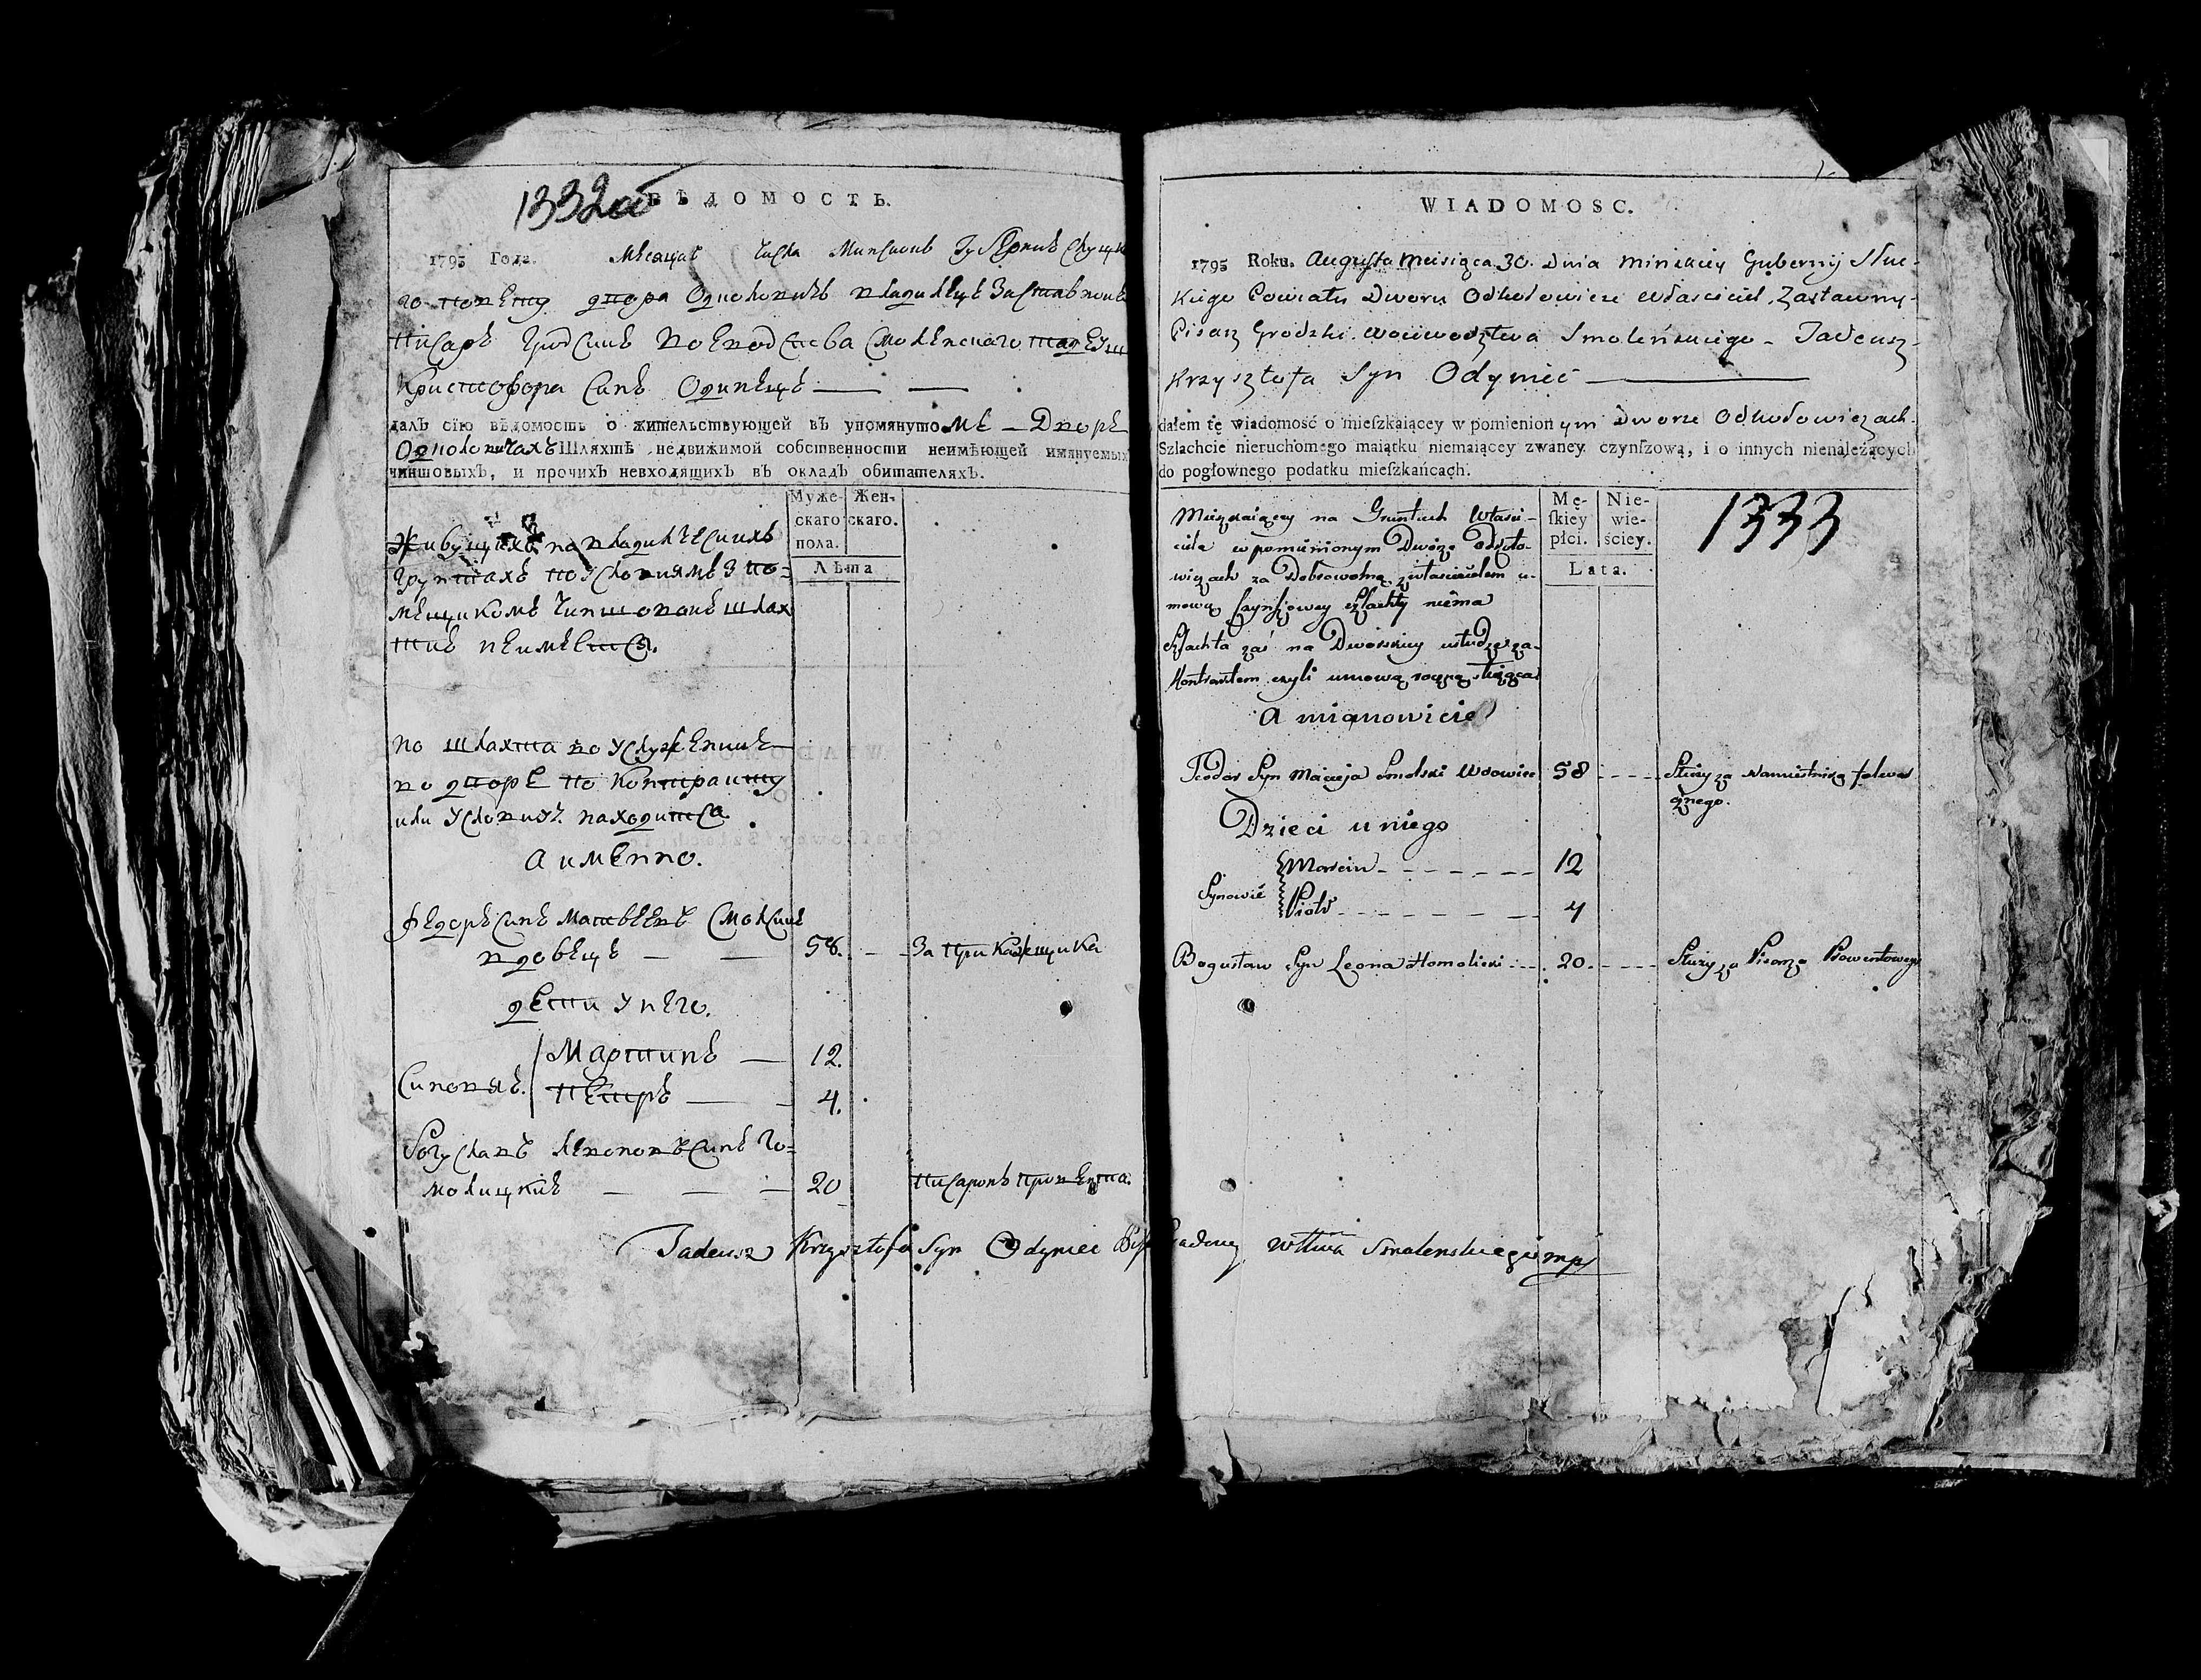 1332об
ВѢДОМОСТЬ.
1795 Года. Месяца Числа Минской Губернии Слуцка
го повету двора Одколовичъ владелецъ Заставной
писарь Гродский воеводства Смоленскаго Тадеуш
Криштофора Синъ Одинецъ
далъ сїю вѣдомость о жительствующей въ упомянутомъ Дворѣ
Одколовичахъ Шляхтѣ недвижимой собственности неимѣющей имянуемыхъ
чиншовыхъ, и прочихъ невходящихъ въ окладъ обитателяхъ.
Муже- Жен-
скаго скаго.
пола.
Лѣта
Живущихъ на владилческихъ
грунтахъ по условиямъ з по-
мещикомъ Чиншовой шлях
ти неимеется.
но шляхта во услужении
во дворе по контракту
или условию находится
а именно.
Федоръ Синъ Матвеевъ Смолский
вдовецъ 58. За прикащика
дети у него.
Мартинъ 12.
Синовя.
Петръ 4.
Богуславъ Леоновъ Синъ Го-
молицкий 20 писаромъ провента.
Tadeusz Krzysztofa Syn Odyniec Pis Smolenskiego mp
WIADOMOSC.
1795 Roku. Augusta Meisiąca 30. Dnia Minskiey Gubernij Słuc-
kiego Powiatu Dworu Odkołowicze Właściciel Zastawny
Pisarz Grodzki Woiewodztwa Smoleńskiego - Tadeusz
Krzysztofa Syn Odyniec
dałem tę wiadomość o mieſzkaiącey w pomienionym Dworze Odkołowiczach
Szlachcie nieruchomego maiątku niemaiącey zwaney czynſzową, i o innych nienależących
do pogłownego podatku mieſzkańcach.
Mę- Nie-
ſkiey wie-
płci. ściey.
Lata.
1333
Mieszkaiącey na Gruntach Właści-
ciela w pomienionym Dworze Odkoło-
wiczach za Dobrowolną z właścicielem u-
mową Czynszowey szlachty niema
Szlachta zaś na Dworskiey usłudze za
Kontraktem czyli umową roczną służąca
a mianowicie
Teodor Syn Macieja Smolski Wdowiec 58 Służy za Namiestnika folwar
cznego.
Dzieci u niego
Marcin 12
Synowie
Piotr 4
Bogusław Syn Leona Homolicki 20. Służy za Pisarza Prowentowego